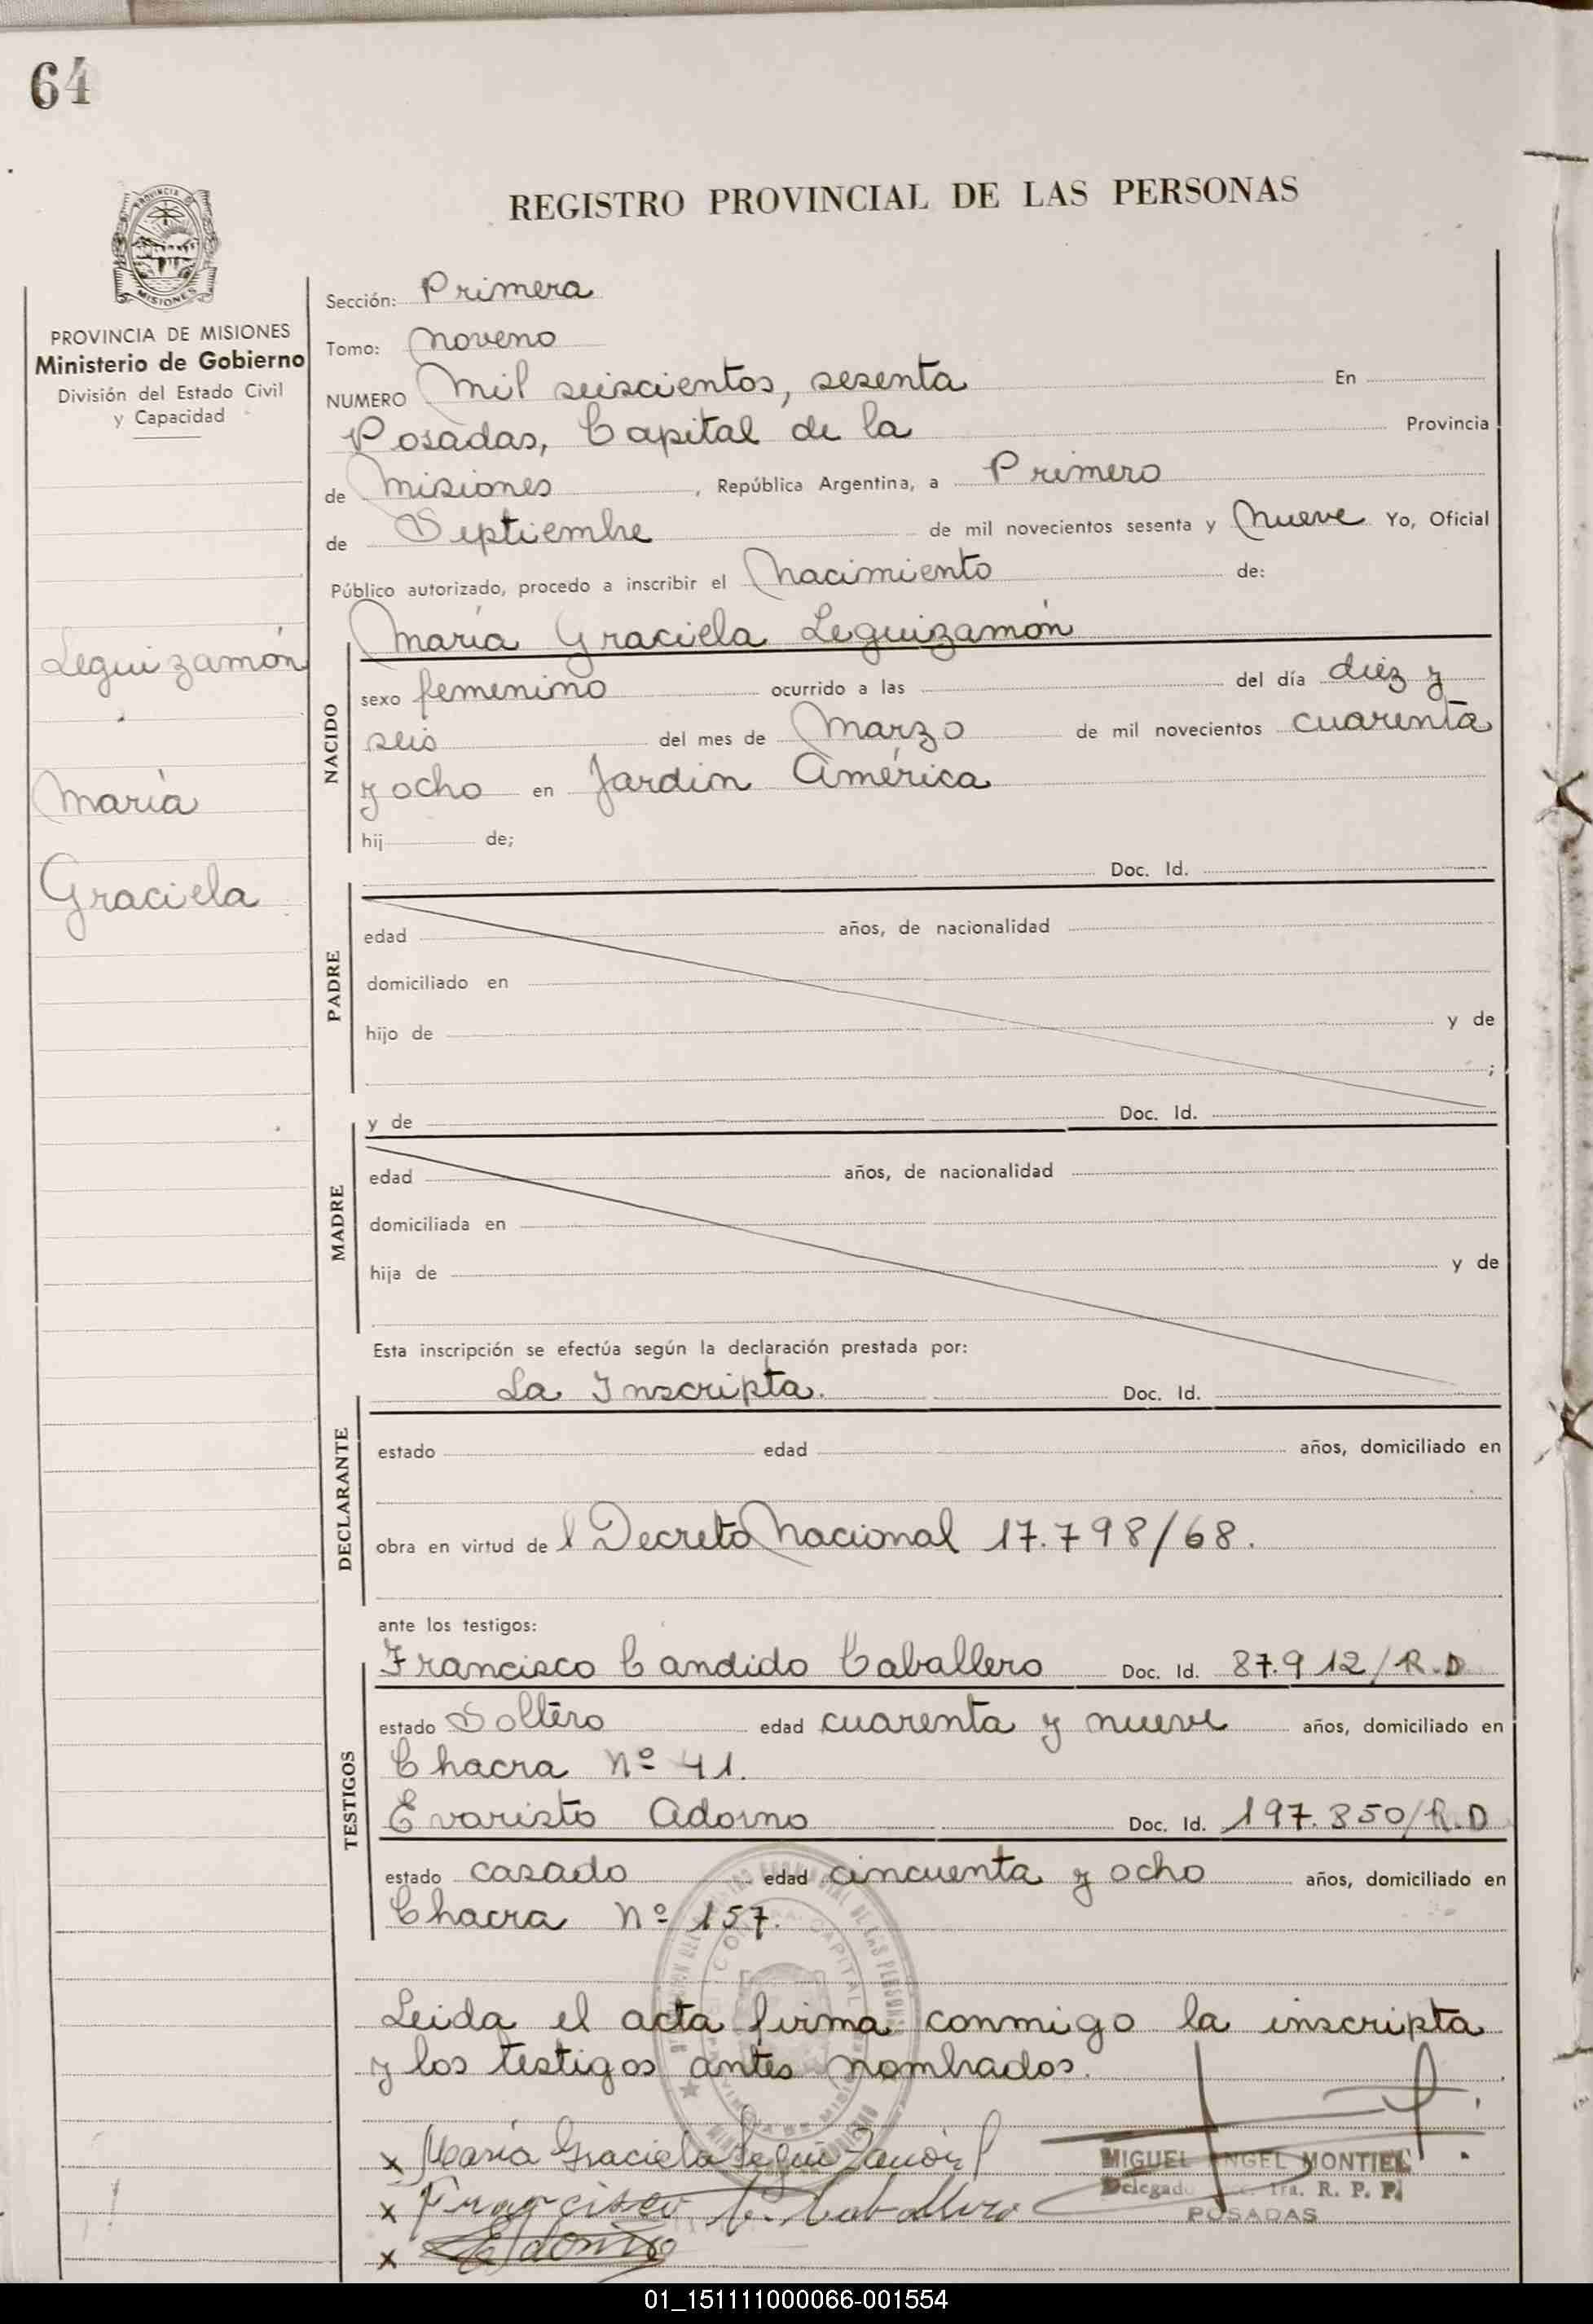 64
REGISTRO PROVINCIAL DE LAS PERSONAS
PROVINCIA
MISIONES
PROVINCIA DE MISIONES
Ministerio de Gobierno
División del Estado Civil
y Capacidad
Leguizamón
María
Graciela
Sección: Primera
Tomo: Noveno
NUMERO Mil seiscientos, sesenta En
Posadas, Capital de la Provincia
de Misiones, República Argentina, a Primero
de Septiembre de mil novecientos sesenta y Nueve Yo, Oficial
Público autorizado, procedo a inscribir el Nacimiento de:
María Graciela Leguizamón
NACIDO
sexo femenino ocurrido a las del día diez y
seis del mes de Marzo de mil novecientos cuarenta
y ocho en Jardin América
hij de;
Doc. Id.
PADRE
edad años, de nacionalidad
domiciliado en
hijo de y de
;
y de Doc. Id.
MADRE
edad años, de nacionalidad
domiciliada en
hija de y de
Esta inscripción se efectúa según la declaración prestada por:
La Inscripta. Doc. Id.
DECLARANTE
estado edad años, domiciliado en
obra en virtud de l Decreto Nacional 17.798/68.
ante los testigos:
Francisco Candido Caballero Doc. Id. 87.912/R.D
TESTIGOS
estado Soltero edad cuarenta y nueve años, domiciliado en
Chacra Nº 41.
Evaristo Adorno Doc. Id. 197.850/R.D
estado casado edad cincuenta y ocho años, domiciliado en
Chacra Nº 157.
Leida el acta firma conmigo la inscripta
y los testigos antes nombrados.
x María Graciela Leguizamón
MIGUEL ANGEL MONTIEL
Delegado 1ra. R. P. P.
x Francisco C. Caballero
POSADAS
x EAdorno
01_151111000066-001554